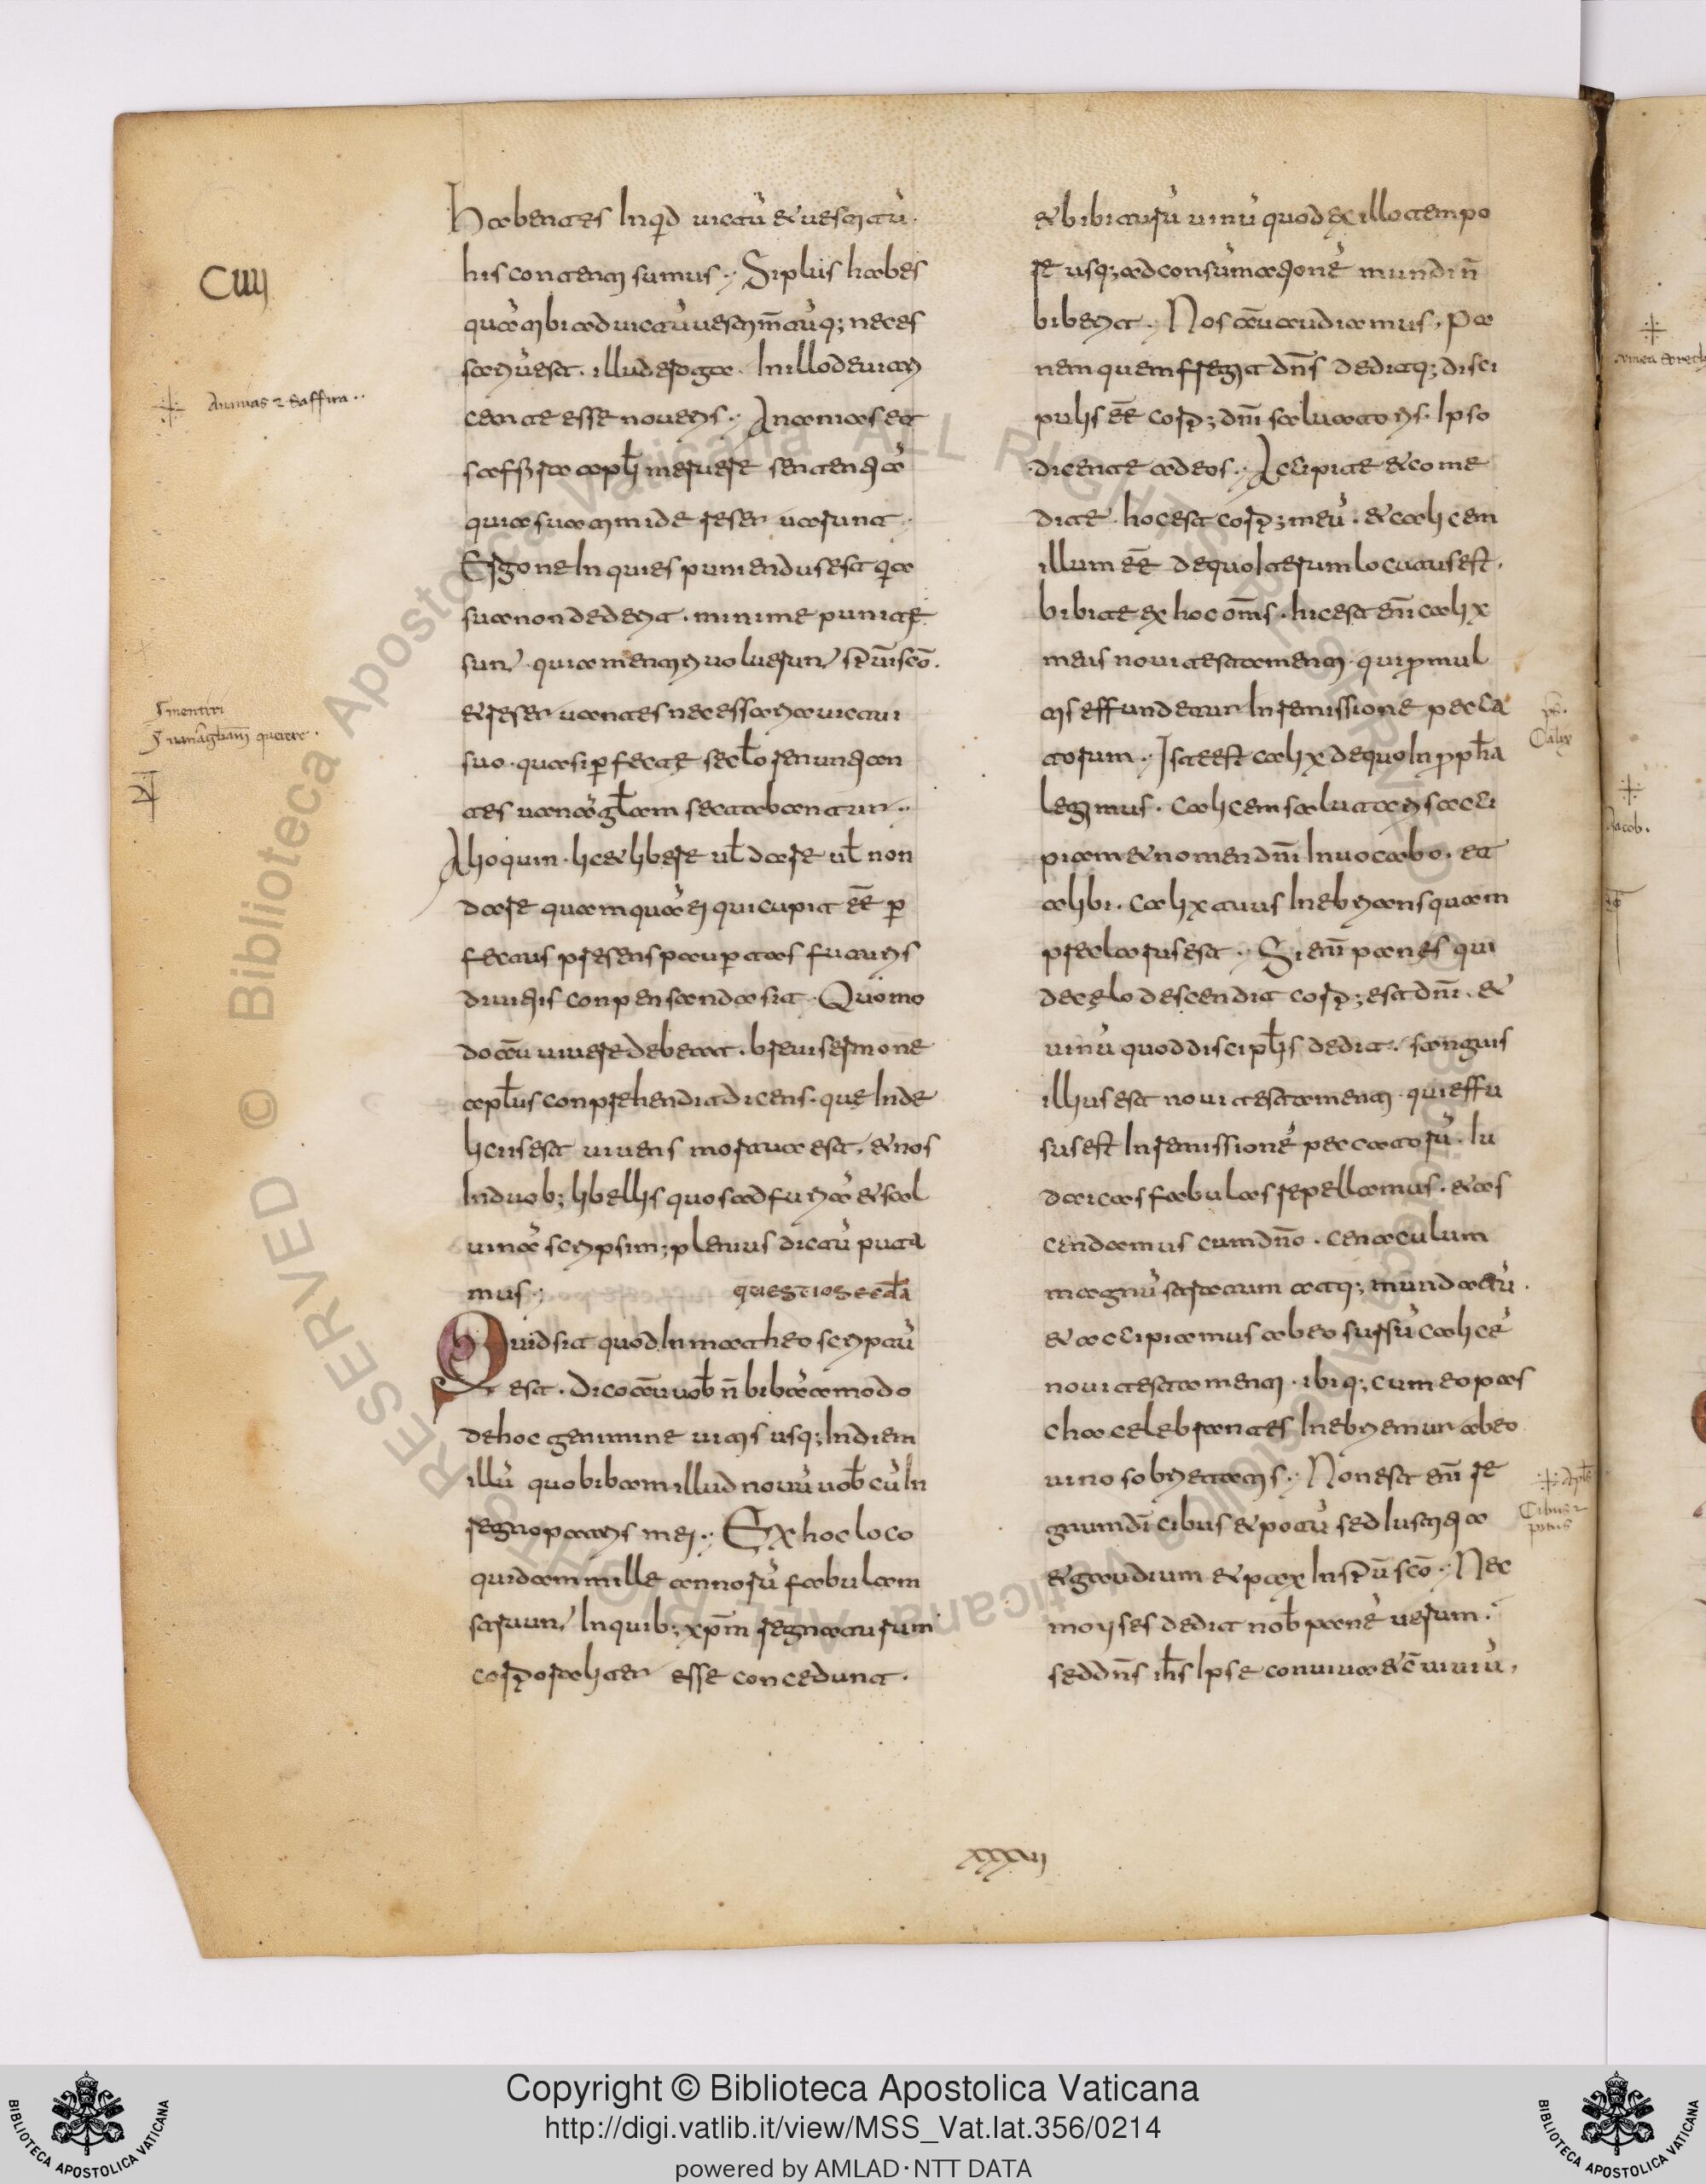 CIIII
Ananias ⁊ Saffira..
mentiri
uanāgliam̄ querere.
Habentes Inqd uictū & uestitū.
his contenti sumus. Si plus habes
quā tibi ad uictū uestim̄tūq; neces
sariū est. illud eroga. In illo debitri
cem te esse noueris. Ananias et
saffira apłi meruere sententiā
quia sua timide reseruarunt.
Ergone Inquies puniendus est qia
sua non dederit. minime puniti
sunt. quia mentiri uoluerunt spūi scō.
& reseruantes necessaria uictui
suo. quasi pfecte sećlo renuntian
tes uanā głam sectabantur.
Alioquin. licet lib&re uł dare uł non
dare quamquā ei qui cupit ēē p
fectus presens paupertas futuris
diuitiis conpensanda sit. Quomo
do aū uiuere debeat. breui sermone
apłus conprehendit dicens. que Inde
liciis est uiuens mortua est. & nos
Induob; libellis quos ad furiā & sal
uinā scripsim; plenius dictū puta
mus.; questio secda
Quid sit quod In matheo scriptū
est. Dico aū uob̄ n̄ bibā amodo
de hoc genimine uitis usq; In diem
illū quo bibam illud nouū uob̄ cū In
regno patris mei. Ex hoc loco
quidam mille annorū fabulam
struunt Inquib; xp̄m regnaturum
corporaliter esse concedunt.
& bibiturū uinū quod ex illo tempo
re usq; ad consūmationē mundi n̄
biberit. Nos aū audiamus, Pa
nem quem fregit dn̄s deditq; disci
pulis ēē corp; dn̄i saluatoris. Ipso
dicente ad eos. Accipite & come
dite. hoc est corp; meū. & calicem
illum ēē de quo Iterum locutus est.
bibite ex hoc om̄s. hic est en̄i calix
meus noui testamenti. qui p mul
tis effundetur In remissione pecca
torum. Iste est calix de quo In pph̄a
legimus. Calicem salutaris acci
piam & nomen dn̄i Inuocabo. et
alibi. Calix tuus Inebrians quam
preclarus est. Si en̄i panis qui
de cęlo descendit corp; est dn̄i. &
uinū quod discipłis dedit. sanguis
illius est noui testamenti. qui effu
sus est In remissionē peccatorū. Iu
daicas fabulas repellamus. & as
cendamus cum dn̄o. cenaculum
magnū stratum atq; mundatū.
& accipiamus ab eo sursū calicē
noui testamenti. ibiq; cum eo pas
cha celebrantes Inebriemur ab eo
uino sobrietatis. Non est en̄i re
gnum dī cibus & potū sed Iustitia
& gaudium & pax In spū scō. Nec
moyses dedit nob̄ panē uerum.
sed dn̄s ih̄s Ipse conuiua & c̄uiuiū,
Calix
Cibus ⁊
potus
Jacob.
Copyright © Biblioteca Apostolica Vaticana
http://digi.vatlib.it/view/MSS_Vat.lat.356/0214
powered by AMLAD·NTT DATA
BIBLIOTECA APOSTOLICA VATICANA
BIBLIOTECA APOSTOLICA VATICANA